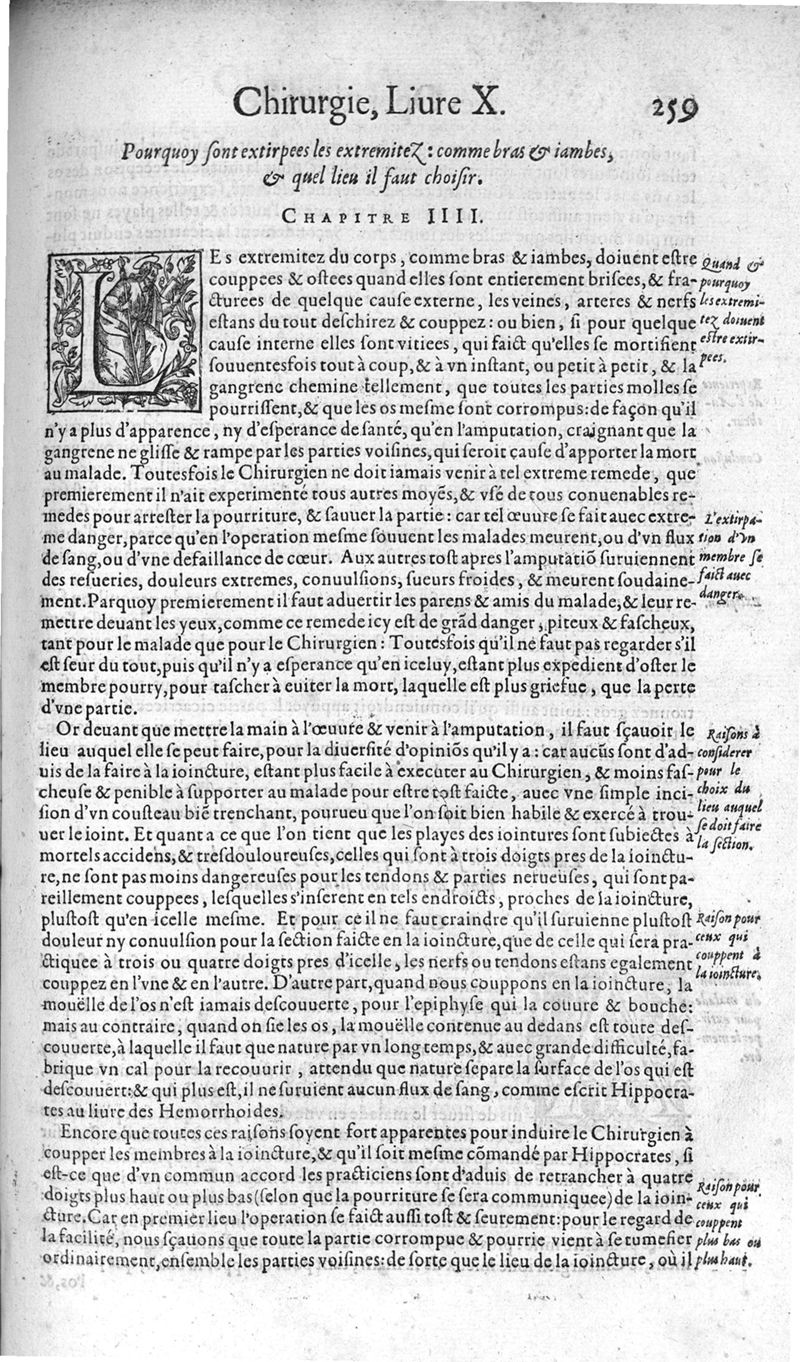 Chirurgie, Liure X. 259
Pourquoy sont extirpees les extremitez: comme bras & iambes,
& quel lieu il faut choisir.
CHAPITRE IIII.
LEs extremitez du corps, comme bras & iambes, doiuent estre
couppees & ostees quand elles sont entierement brisees, & fra-
cturees de quelque cause externe, les veines, arteres & nerfs
estans du tout deschirez & couppez: ou bien, si pour quelque
cause interne elles sont vitiees, qui faict qu'elles se mortifient
souuentesfois tout à coup, & à vn instant, ou petit à petit, & la
gangrene chemine tellement, que toutes les parties molles se
pourrissent, & que les os mesme sont corrompus: de façon qu'il
n'y a plus d'apparence, ny d'esperance de santé, qu'en l'amputation, craignant que la
gangrene ne glisse & rampe par les parties voisines, qui seroit cause d'apporter la mort
au malade. Toutesfois le Chirurgien ne doit iamais venir à tel extreme remede, que
premierement il n'ait experimenté tous autres moyẽs, & vsé de tous conuenables re-
medes pour arrester la pourriture, & sauuer la partie: car tel œuure se fait auec extre-
me danger, parce qu'en l'operation mesme souuent les malades meurent, ou d'vn flux
de sang, ou d'vne defaillance de cœur. Aux autres tost apres l'amputatiõ suruiennent
des resueries, douleurs extremes, conuulsions, sueurs froides, & meurent soudaine-
ment. Parquoy premierement il faut aduertir les parens & amis du malade, & leur re-
mettre deuant les yeux, comme ce remede icy est de grãd danger, piteux & fascheux,
tant pour le malade que pour le Chirurgien: Toutesfois qu'il ne faut pas regarder s'il
est seur du tout, puis qu'il n'y a esperance qu'en iceluy, estant plus expedient d'oster le
membre pourry, pour tascher à euiter la mort, laquelle est plus griefue, que la perte
d'vne partie.
Or deuant que mettre la main à l'œuure & venir à l'amputation, il faut sçauoir le
lieu auquel elle se peut faire, pour la diuersité d'opiniõs qu'il y a: car aucũs sont d'ad-
uis de la faire à la ioincture, estant plus facile à executer au Chirurgien, & moins fas-
cheuse & penible à supporter au malade pour estre tost faicte, auec vne simple inci-
sion d'vn cousteau biẽ trenchant, pourueu que l'on soit bien habile & exercé à trou-
uer le ioint. Et quant a ce que l'on tient que les playes des iointures sont subiectes à
mortels accidens, & tresdouloureuses, celles qui sont à trois doigts pres de la ioinctu-
re, ne sont pas moins dangereuses pour les tendons & parties nerueuses, qui sont pa-
reillement couppees, lesquelles s'inserent en tels endroicts, proches de la ioincture,
plustost qu'en icelle mesme. Et pour ce il ne faut craindre qu'il suruienne plustost
douleur ny conuulsion pour la section faicte en la ioincture, que de celle qui sera pra-
ctiquee à trois ou quatre doigts pres d'icelle, les nerfs ou tendons estans egalement
couppez en l'vne & en l'autre. D'autre part, quand nous couppons en la ioincture, la
mouëlle de l'os n'est iamais descouuerte, pour l'epiphyse qui la couure & bouche:
mais au contraire, quand on sie les os, la mouëlle contenue au dedans est toute des-
couuerte, à laquelle il faut que nature par vn long temps, & auec grande difficulté, fa-
brique vn cal pour la recouurir, attendu que nature separe la surface de l'os qui est
descouuert: & qui plus est, il ne suruient aucun flux de sang, comme escrit Hippocra-
tes au liure des Hemorrhoides.
Encore que toutes ces raisons soyent fort apparentes pour induire le Chirurgien à
coupper les membres à la ioincture, & qu'il soit mesme cõmandé par Hippocrates, si
est-ce que d'vn commun accord les practiciens sont d'aduis de retrancher à quatre
doigts plus haut ou plus bas (selon que la pourriture se sera communiquee) de la ioin-
cture. Car en premier lieu l'operation se faict aussi tost & seurement: pour le regard de
la facilité, nous sçauons que toute la partie corrompue & pourrie vient à se tumefier
ordinairement, ensemble les parties voisines: de sorte que le lieu de la ioincture, où il
Quand &
pourquoy
les extremi-
tez doiuent
estre extir-
pees.
L'extirpa-
tion d'vn
membre se
faict auec
danger.
Raisons à
considerer
pour le
choix du
lieu auquel
se doit faire
la section.
Raison pour
ceux qui
couppent à
la ioincture.
Raison pour
ceux qui
couppent
plus bas ou
plus haut.